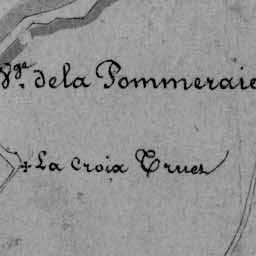 Vge. de la Pommeraie
La Croix Trues